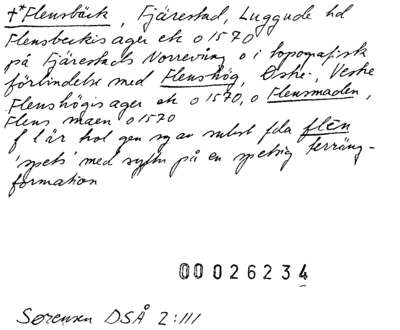 †*Flensbäck, Fjärestad, Luggude hd
Flensbeckis ager etc o 1570
på Fjärestads Norrevång o i topografisk
förbindelse med Flenshög, Østre-, Vestre
Flenshögis ager etc o 1570, o Flensmaden,
Flens maen o 1570
f l är hal gen sg av subst fda flēn
'spets' med syftn på en spetsig terräng-
formation
00026234
Sørensen DSÅ 2:111